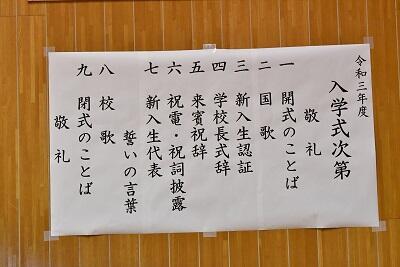 令和三年度
入学式次第
敬礼
一 開式のことば
二 国歌
三 新入生認証
四 学校長式辞
五 来賓祝辞
六 祝電・祝詞披露
七 新入生代表
誓いの言葉
八 校歌
九 閉式のことば
敬礼